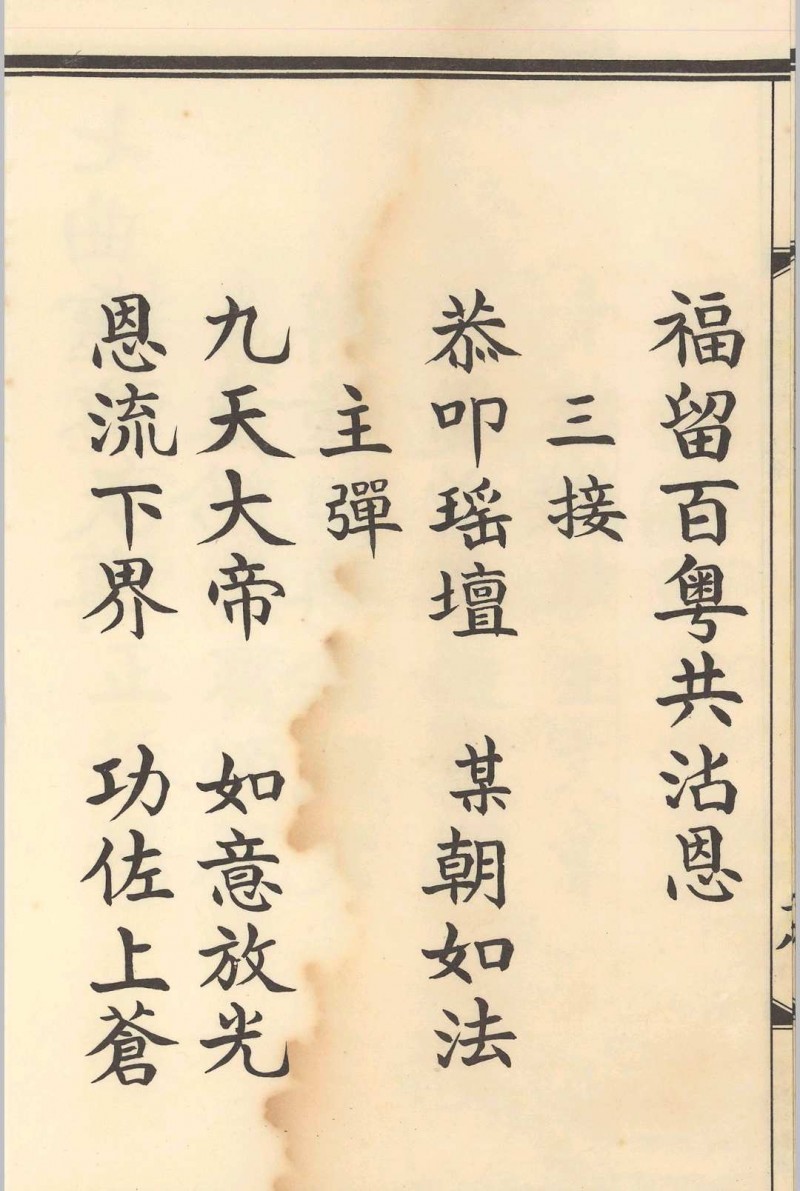 福留百粤共沾恩
三接
恭叩瑶壇　某朝如法
主彈
九天大帝　如意放光
恩流下界　功佐上蒼